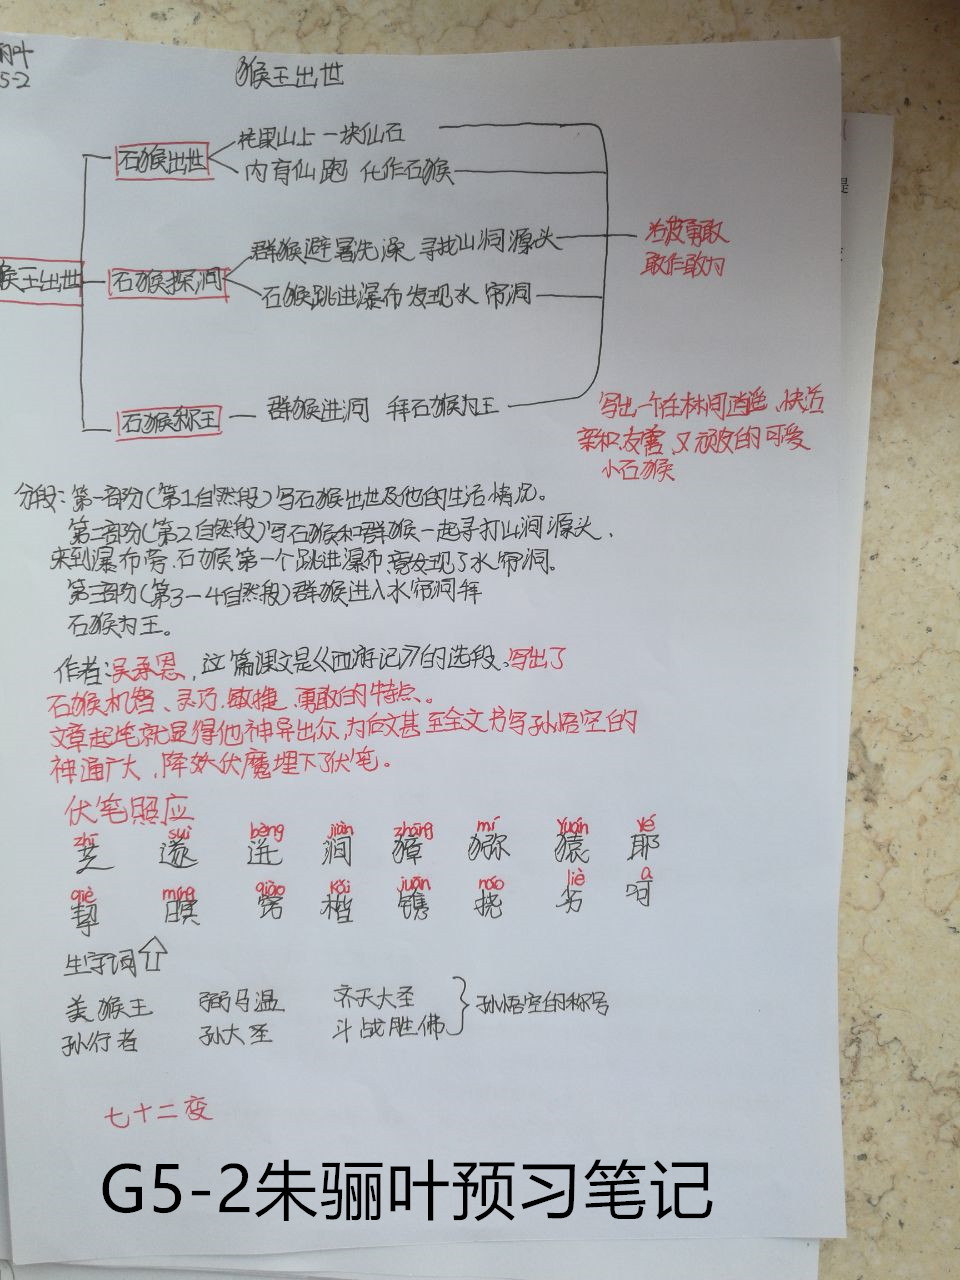 5-2
猴王出世
石猴出世
花果山上 一块仙石
内有仙跑 化作石猴
猴王出世
石猴探洞
群猴避暑洗澡 寻找山涧源头
石猴跳进瀑布发现水帘洞
活泼勇敢
敢作敢为
石猴称王
群猴进洞 拜石猴为王
写出一个在林间逍遥、快活
亲和、友善、又顽皮的可爱
小石猴
分段：第一部分（第1自然段）写石猴出世及他的生活情况。
第二部分（第2自然段）写石猴和群猴一起寻找山涧源头，
来到瀑布旁，石猴第一个跳进瀑布，竟发现了水帘洞。
第三部份（第3-4自然段）群猴进入水帘洞拜
石猴为王。
作者：吴承恩，这篇课文是《西游记》的选段、写出了
石猴机智、灵巧、敏捷、勇敢的特点。
文章起笔就显得他神异出众，为后文甚至全文书写孙悟空的
神通广大，降妖伏魔埋下了伏笔。
伏笔照应
zhī suì bèng jiàn zhāng mí yuán yé
芝 遂 迸 涧 獐 猕 猿 耶
qiè míng qiào kǎi juān náo liè a
挈 瞑 窍 楷 镌 挠 劣 呵
生字词
美猴王 弼马温 齐天大圣
孙悟空的称号
孙行者 孙大圣 斗战胜佛
七十二变
G5-2朱骊叶预习笔记